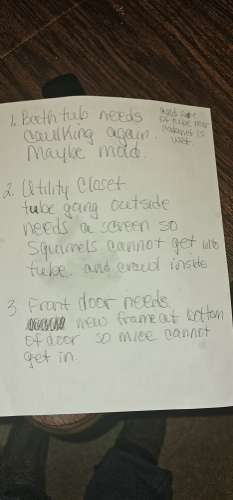 1. Bathtub needs
caulking again.
Maybe mold.
and side
of tube near
cabinet is
wet
2. Utility Closet
tube going outside
needs a screen so
Squirrels cannot get into
tube and crawl inside
3. Front door needs
new frame at bottom
of door so mice cannot
get in.